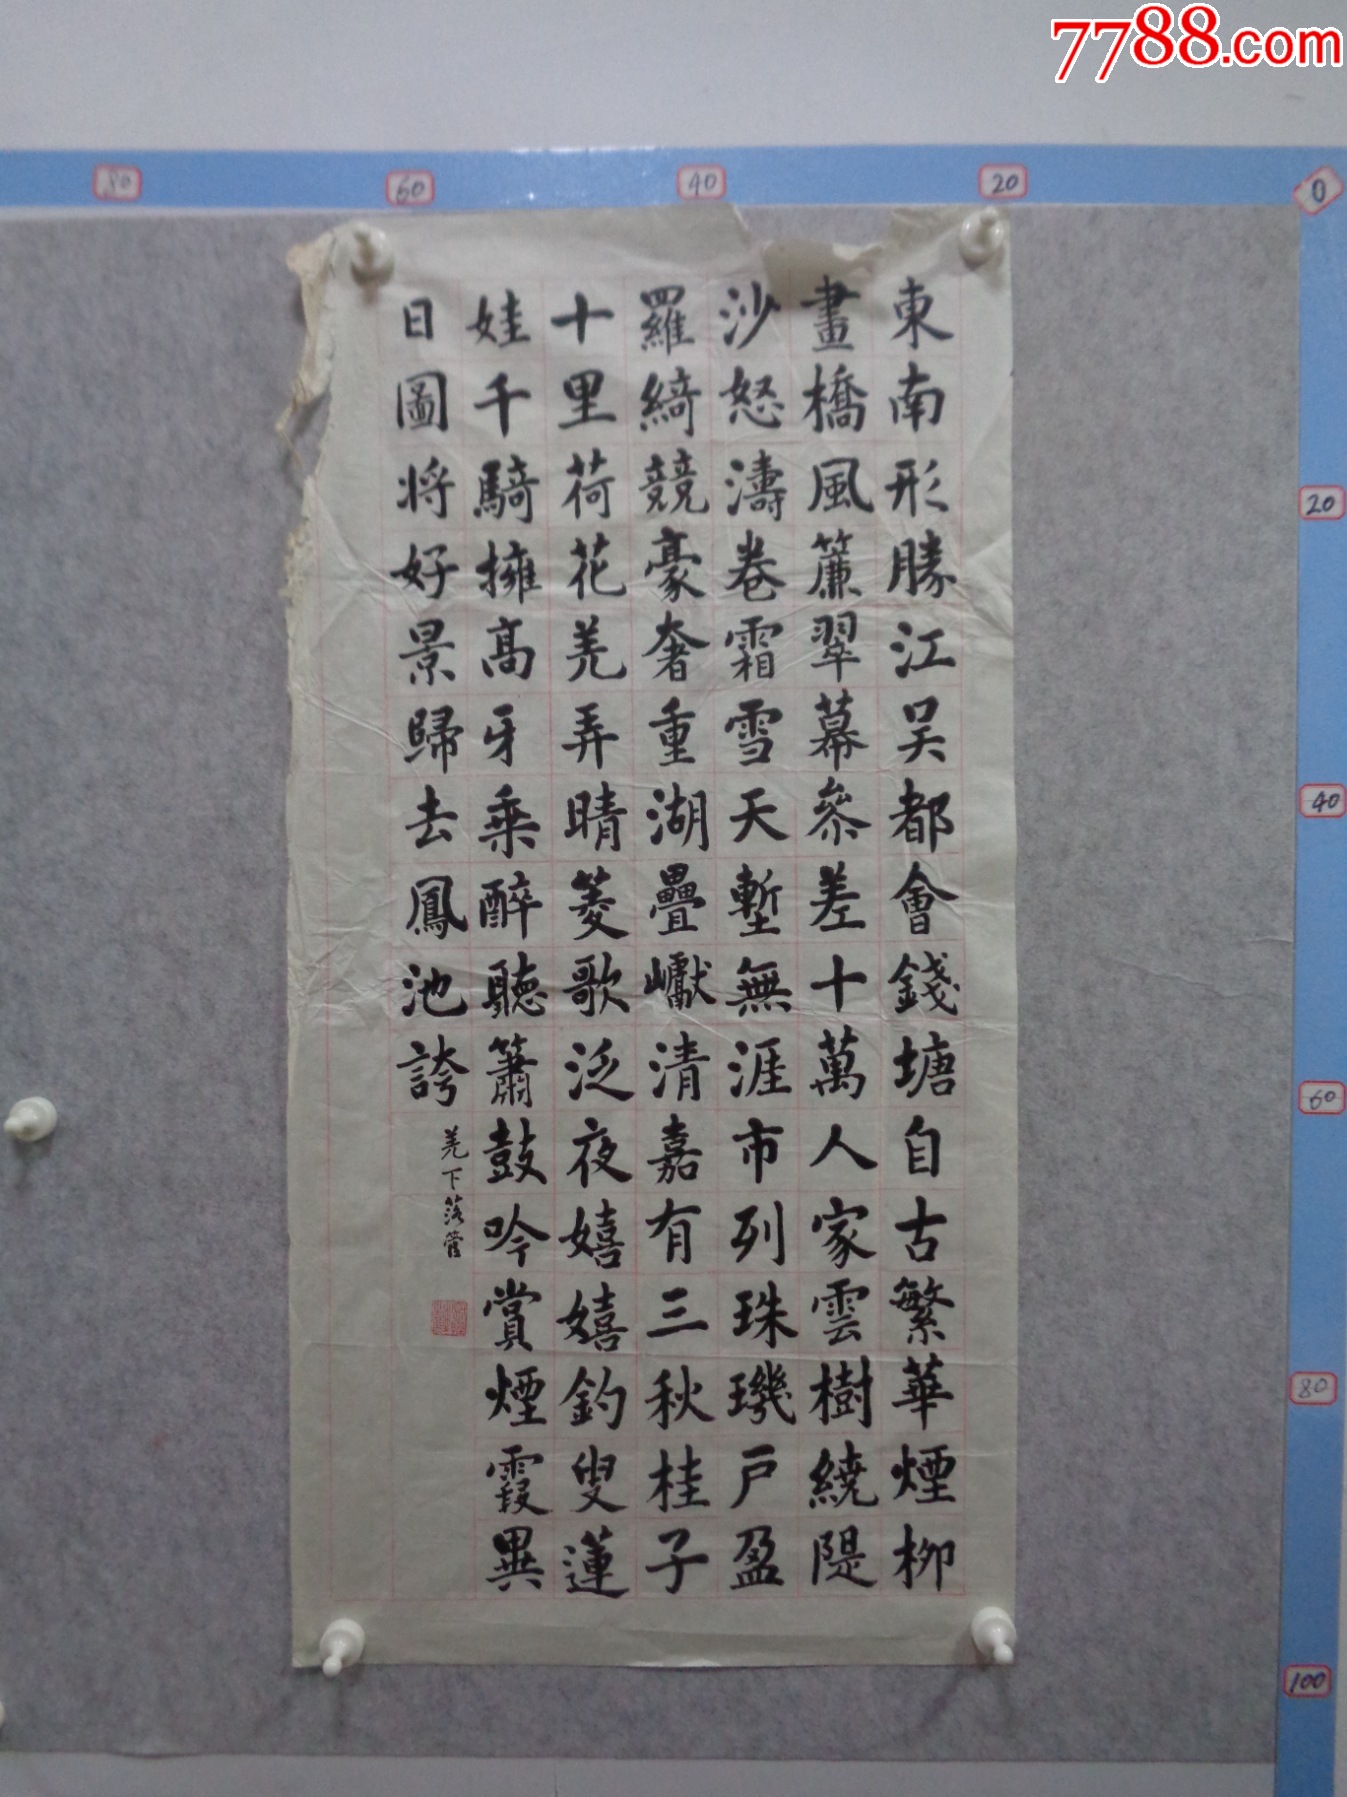 7788.com
80 60 40 20 0
東南形勝江吴都會錢塘自古繁華煙柳
畫橋風簾翠幕叅差十萬人家雲樹繞隄
沙怒濤卷霜雪天塹無涯市列珠璣户盈
羅綺競豪奢重湖疊巘清嘉有三秋桂子
十里荷花羌弄晴菱歌泛夜嬉嬉釣叟蓮
娃千騎擁高牙乘醉聽簫鼓吟賞煙霞異
日圖将好景歸去鳳池誇
羌下落管
20
40
60
80
100